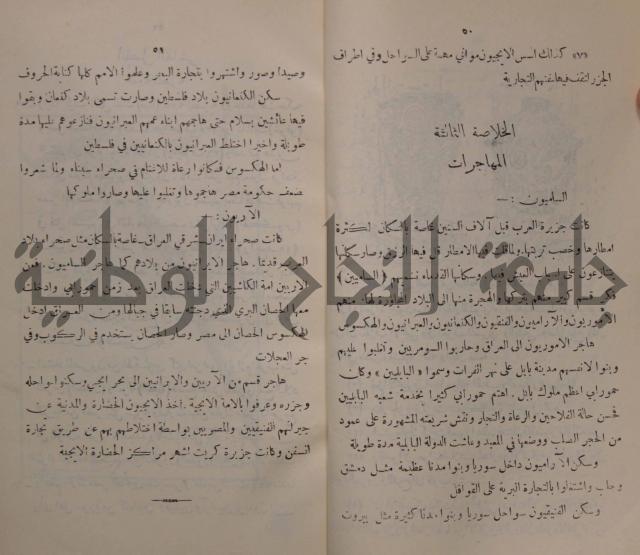 ٥٠
«٧» كذلك اسس الايجيون موانئ مهمة على السواحل وفي اطراف
الجزر لتقف فيها سفنهم التجارية
الخلاصة الثالثة
المهاجرات
الساميون : —
كانت جزيرة العرب قبل آلاف السنين غاصة بالسكان لكثرة
امطارها وخصب تربتها ولما قلت فيها الامطار قل فيها الرزق وصار سكانها
يتنازعون على اسباب العيش فيها وسكانها القدماء نسميهم ( الساميين )
فكر قسم كبير منهم بتركها والهجرة منها الى البلاد المجاورة لها . منهم
الاموريون والآراميون والفنيقيون والكنعانيون والعبرانيون والهكسوس
هاجر الاموريون الى العراق وحاربوا السومريين وتغلبوا عليهم
وبنوا لانفسهم مدينة بابل على نهر الفرات وسموا « البابليين » وكان
حمورابي اعظم ملوك بابل . اهتم حمورابي كثيرا بخدمة شعبه البابليين
فحسن حالة الفلاحين والرعاة والتجار ونقش شريعته المشهورة على عمود
من الحجر الصلب ووضعها في المعبد وعاشت الدولة البابلية مدة طويلة
وسكن الآراميون داخل سوريا وبنوا مدنا عظيمة مثل دمشق
وحلب واشتغلوا بالتجارة البرية على القوافل
وسكن الفنيقيون سواحل سوريا وبنوا مدنا كثيرة مثل بيروت
٥١
وصيدا وصور واشتهروا بتجارة البحر وعلموا الامم كلها كتابة الحروف
سكن الكنعانيون بلاد فلسطين وصارت تسمى بلاد كنعان وبقوا
فيها عائشين بسلام حتى هاجمهم ابناء عمهم العبرانيون فنازعوهم عليها مدة
طويلة واخيرا اختلط العبرانيون بالكنعانيين في فلسطين
اما الهكسوس فكانوا رعاة للاغنام في صحراء سيناء ولما شعروا
بضعف حكومة مصر هاجموها وتغلبوا عليها وصاروا ملوكها
الآريون : —
كانت صحراء ايران شرقي العراق غاصة بالسكان مثل صحراء بلاد
العرب قديما . هاجر الايرانيون من بلادهم كما هاجر الساميون . فمن
الآريين امة الكاشيين التي دخلت العراق بعد زمن حمورابي وادخلت
معها الحصان البري الذي دجنته سابقا في جبالها ومن العراق ادخل
الهكسوس الحصان الى مصر وصار الحصان يستخدم في الركوب وفي
جر العجلات
هاجر قسم من الآريين والايرانيين الى بحر ايجي وسكنوا سواحله
وجزره وعرفوا بالامة الايجية . أخذ الايجيون الحضارة والمدنية عن
جيرانهم الفنيقيين والمصريين بواسطة اختلاطهم بهم عن طريق تجارة
السفن وكانت جزيرة كريت اشهر مراكز الحضارة الايجية
جامعة النجاح الوطنية